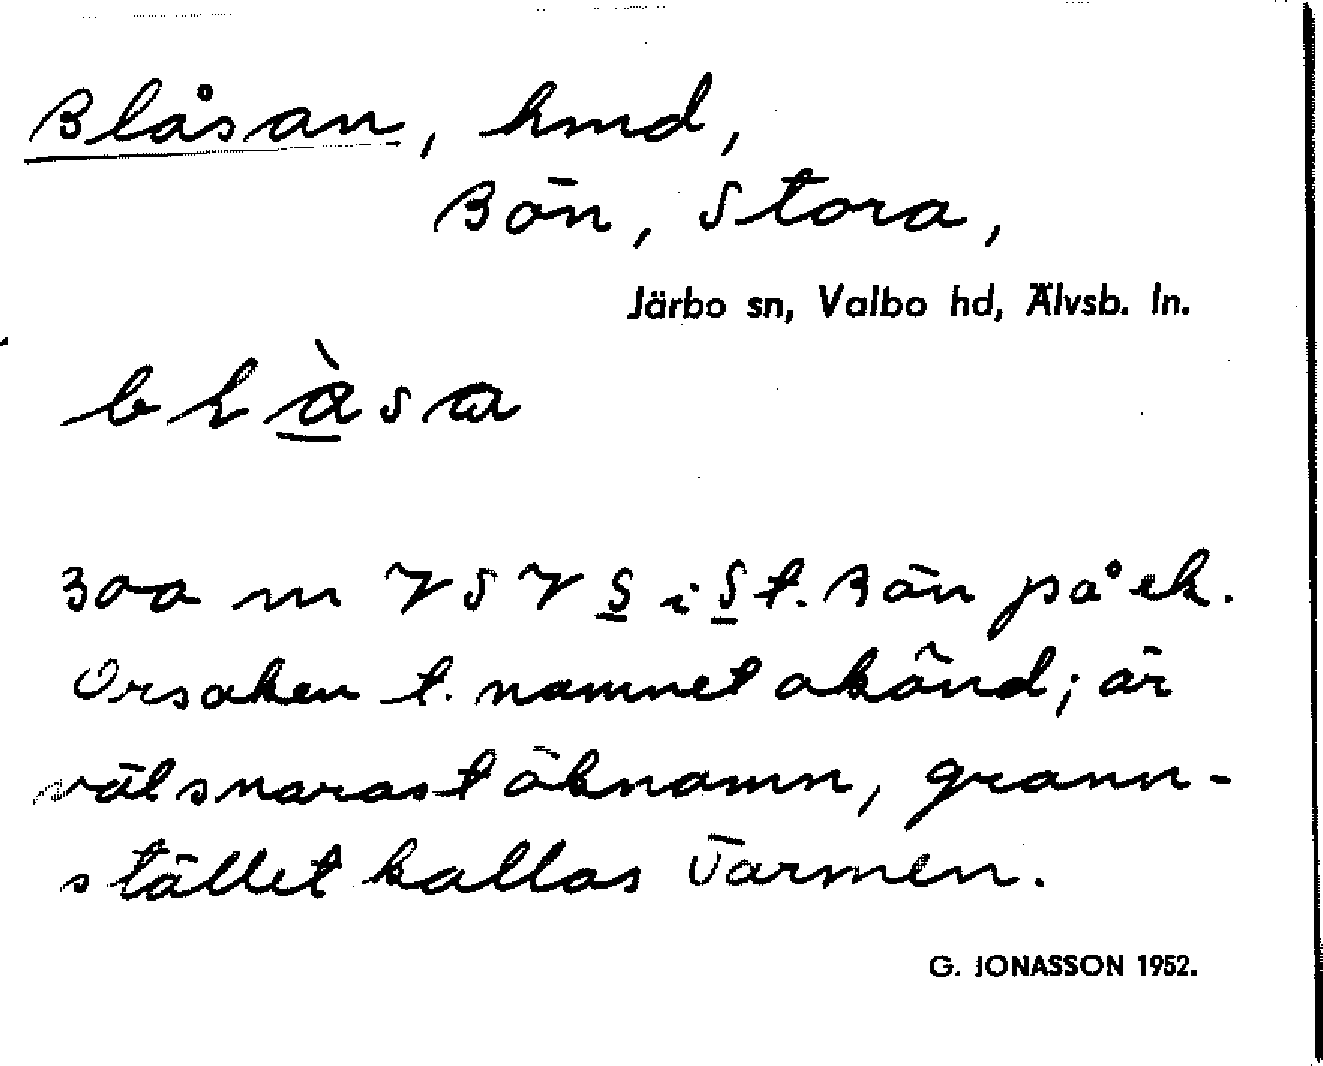 Blåsan, hmd,
Bön, Stora,
Järbo sn, Valbo hd, Älvsb. ln.
bḷàsa
300 m VSV S i St. Bön på ek.
Orsaken t. namnet okänd; är
väl snarast öknamn, grann-
stället kallas Tarmen.
G. JONASSON 1952.